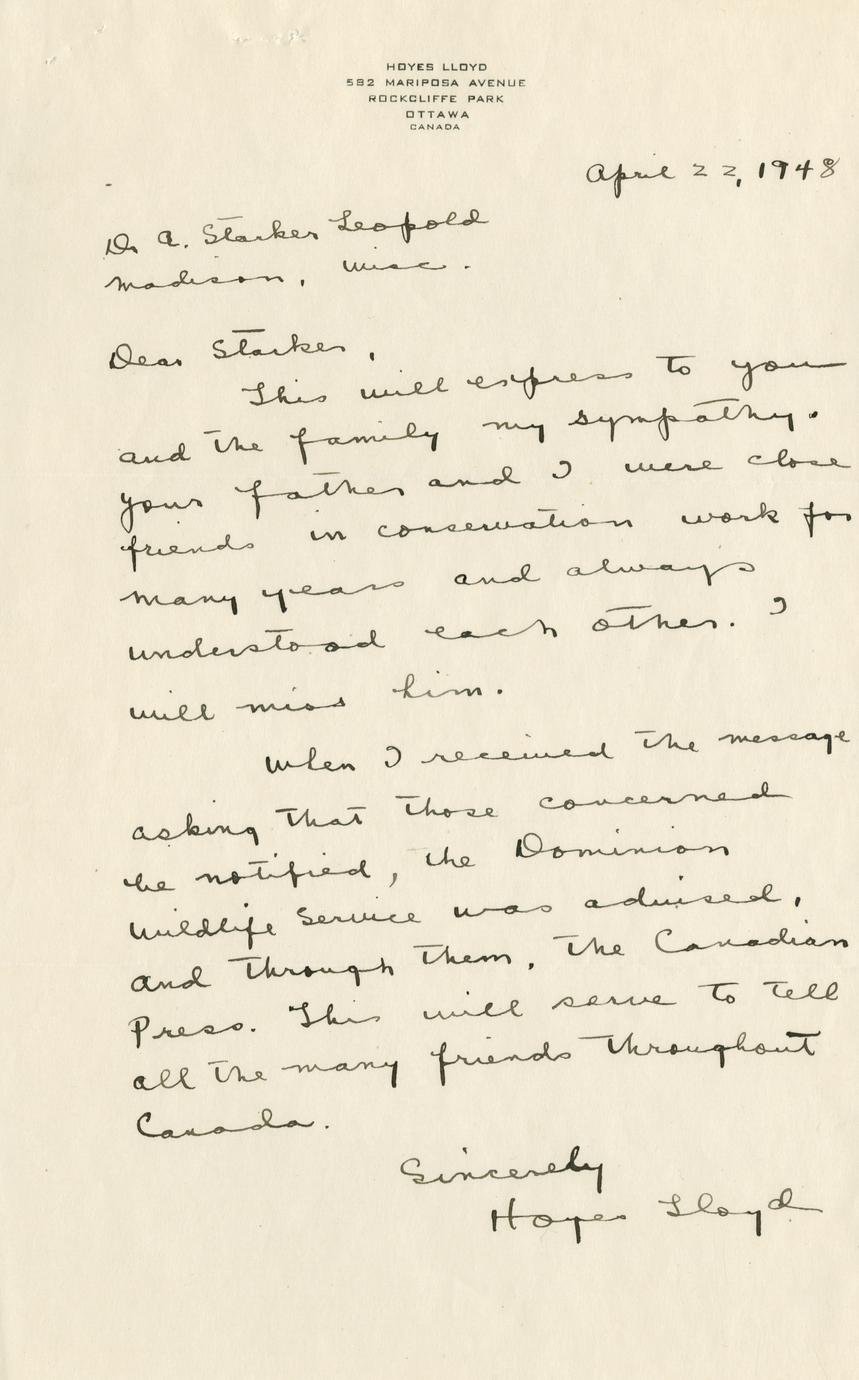 HOYES LLOYD
582 MARIPOSA AVENUE
ROCKCLIFFE PARK
OTTAWA
CANADA
April 22, 1948
Dr A. Starker Leopold
Madison, Wisc.
Dear Starker,
This will express to you
and the family my sympathy.
Your father and I were close
friends in conservation work for
many years and always
understood each other. I
will miss him.
When I received the message
asking that those concerned
be notified, the Dominion
Wildlife Service was advised,
and through them, the Canadian
Press. This will serve to tell
all the many friends throughout
Canada.
Sincerely
Hoyes Lloyd